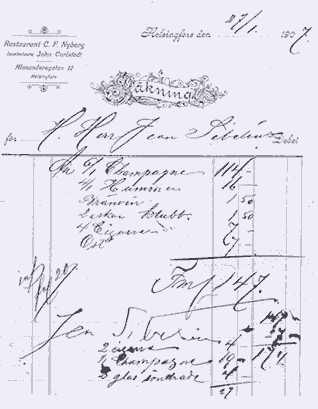 Restaurant C. F. Nyberg
Innehafvare John Carlstedt
Alexandersgatan 12
Helsingfors
Helsingfors den 27/1. 1907.
Räkning
för H. Herr Jean Sibelius Debet
6/1 Champagne 114 -
4/1 Hummer 16 -
Brännvin 1 50
2 askar klubb. 1 50
4 Cigarrer 7 -
Ost 7 -
Fmk 147.-
147.-
Jean Sibelius
2 4
1/1 Champagne 19 -
glas 4
27